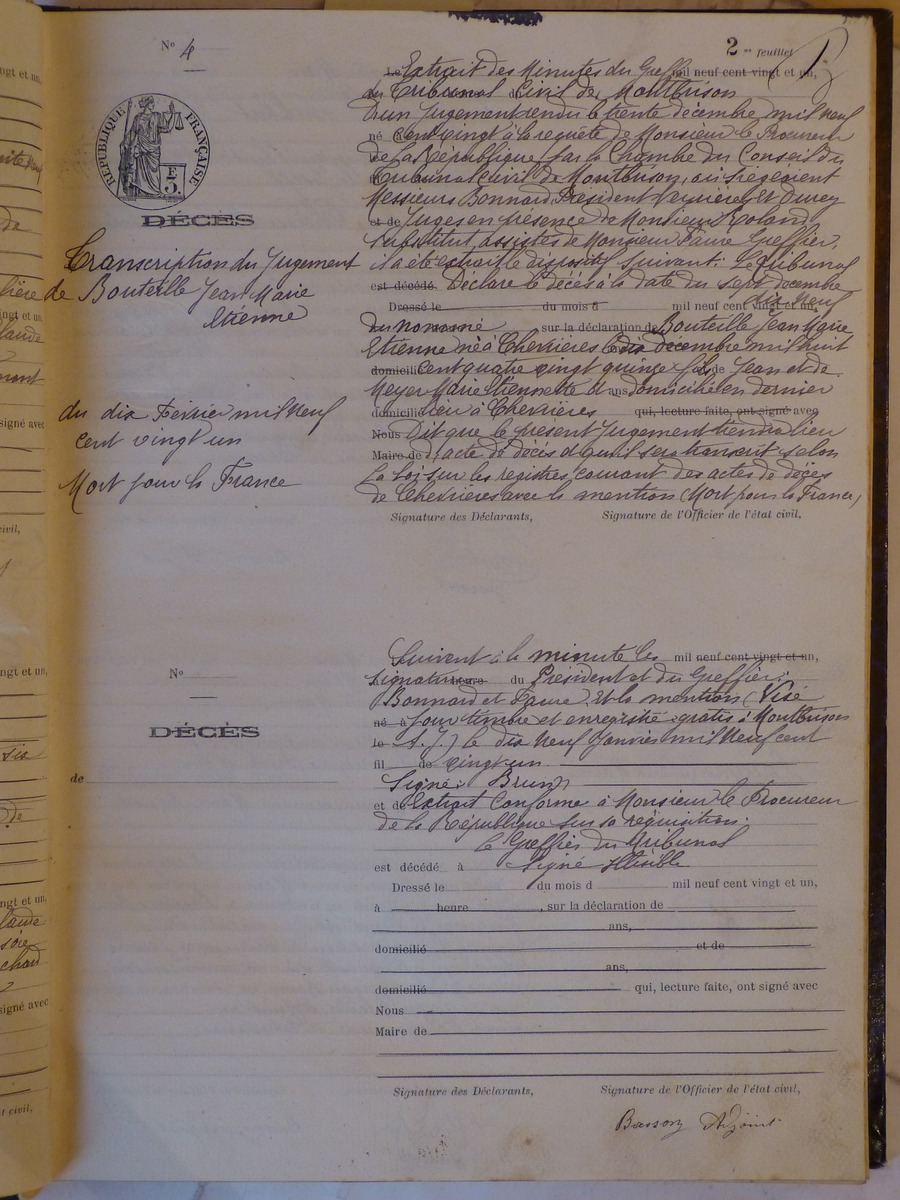 N° 4
2me feuillet
RÉPUBLIQUE FRANÇAISE
E
3.
DÉCÈS
Transcription du Jugement
de Bouteille Jean Marie
Etienne
du dix Février mil neuf
cent vingt un
Mort pour la France
Le Extrait des Minutes du Greffe mil neuf cent vingt et un,
du Tribunal Civil de Montbrison
D'un Jugement rendu le trente décembre mil neuf
né à cent vingt à la requête de Monsieur le Procureur
de la République, par la Chambre du Conseil du
Tribunal Civil de Montbrison, où siégeaient
Messieurs Bonnard Président et
et de Juges en présence de Monsieur Roland
Substitut, assistés de Monsieur Faure Greffier,
il a été extrait le dispositif suivant: Le Tribunal
est décédé. Déclare le décès à la date du sept décembre
dix neuf
Dressé le du mois d mil neuf cent vingt et un,
du nommé sur la déclaration de Bouteille Jean Marie
Etienne né à Chevrières le dix décembre mil huit
domicilié cent quatre vingt quinze fils de Jean et de
Meyer Marie Etiennette et ans domicilié en dernier
domicilié lieu à Chevrières qui, lecture faite, ont signé avec
Nous Dit que le présent Jugement tiendra lieu
Maire de d'acte de décès et qu'il sera transcrit selon
la Loi sur les registres courant des actes de décès
de Chevrières avec la mention (Mort pour la France)
Signature des Déclarants, Signature de l'Officier de l'état civil,
N°
DÉCÈS
de
Suivent à la minute les mil neuf cent vingt et un,
signatures heure du Président et du Greffier:
Bonnard et Faure. Et la mention (Visé
né à pour timbre et enregistré gratis à Montbrison
le A.J.) le dix neuf Janvier mil neuf cent
fil de vingt un.
Signé: Brun
et de Extrait Conforme à Monsieur le Procureur
de la République sur sa réquisition.
Le Greffier du Tribunal
est décédé à Signé Illisible
Dressé le du mois d mil neuf cent vingt et un,
à heure , sur la déclaration de
ans,
domicilié et de
ans,
domicilié qui, lecture faite, ont signé avec
Nous
Maire de
Signature des Déclarants, Signature de l'Officier de l'état civil,
Basson Adjoint